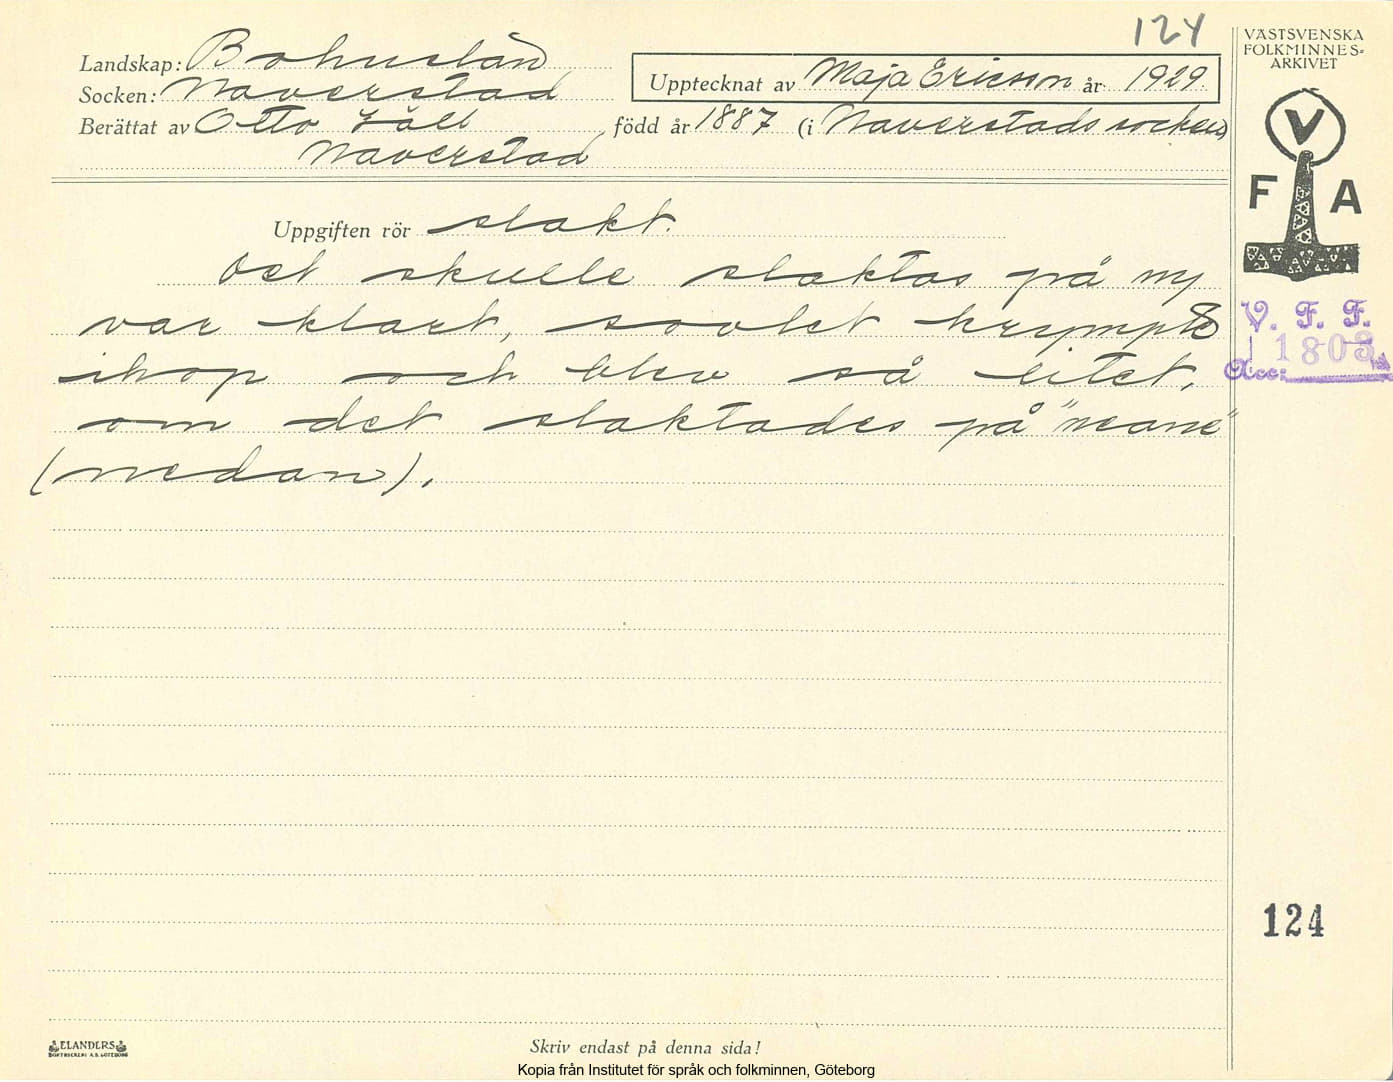 124
Landskap: Bohuslän
Socken: Naverstad
Upptecknat av Maja Ericsson år 1929.
Berättat av Otto född år 1887 (i Naverstads socken)
Naverstad
VÄSTSVENSKA
FOLKMINNES-
ARKIVET
V
F A
Uppgiften rör slakt.
Det skulle slaktas på ny
var klart, sovlet krympte
ihop och blev så litet,
om det slaktades på "neane"
(nedan).
V. F. F.
Acc: 1803
124
ELANDERS
BOKTRYCKERI A.B. GÖTEBORG
Skriv endast på denna sida!
Kopia från Institutet för språk och folkminnen, Göteborg